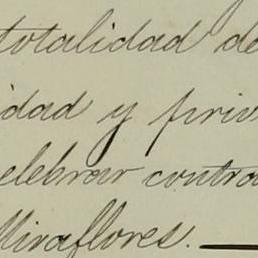 totalidad de
idad y priv
elebrar contra
Miraflores.